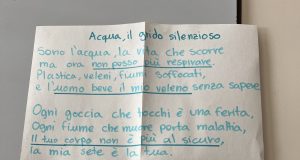 Acqua, il grido silenzioso
Sono l'acqua, la vita che scorre
ma ora non posso più respirare.
Plastica, veleni, fiumi soffocati,
e l'uomo beve il mio veleno senza sapere
Ogni goccia che tocchi è una ferita,
Ogni fiume che muore porta malattia,
Il tuo corpo non è più al sicuro,
la mia sete è la tua.